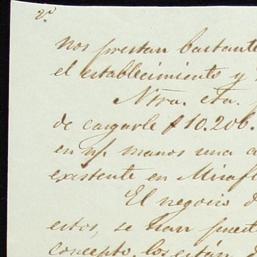 2º
nos prestan bastante
el establecimiento y
Ntra. cta.
de cargarle $ 10.206.
en n/ manos una
existente en Mirafl
El negocio d
estos, se han puest
concepto, los están d